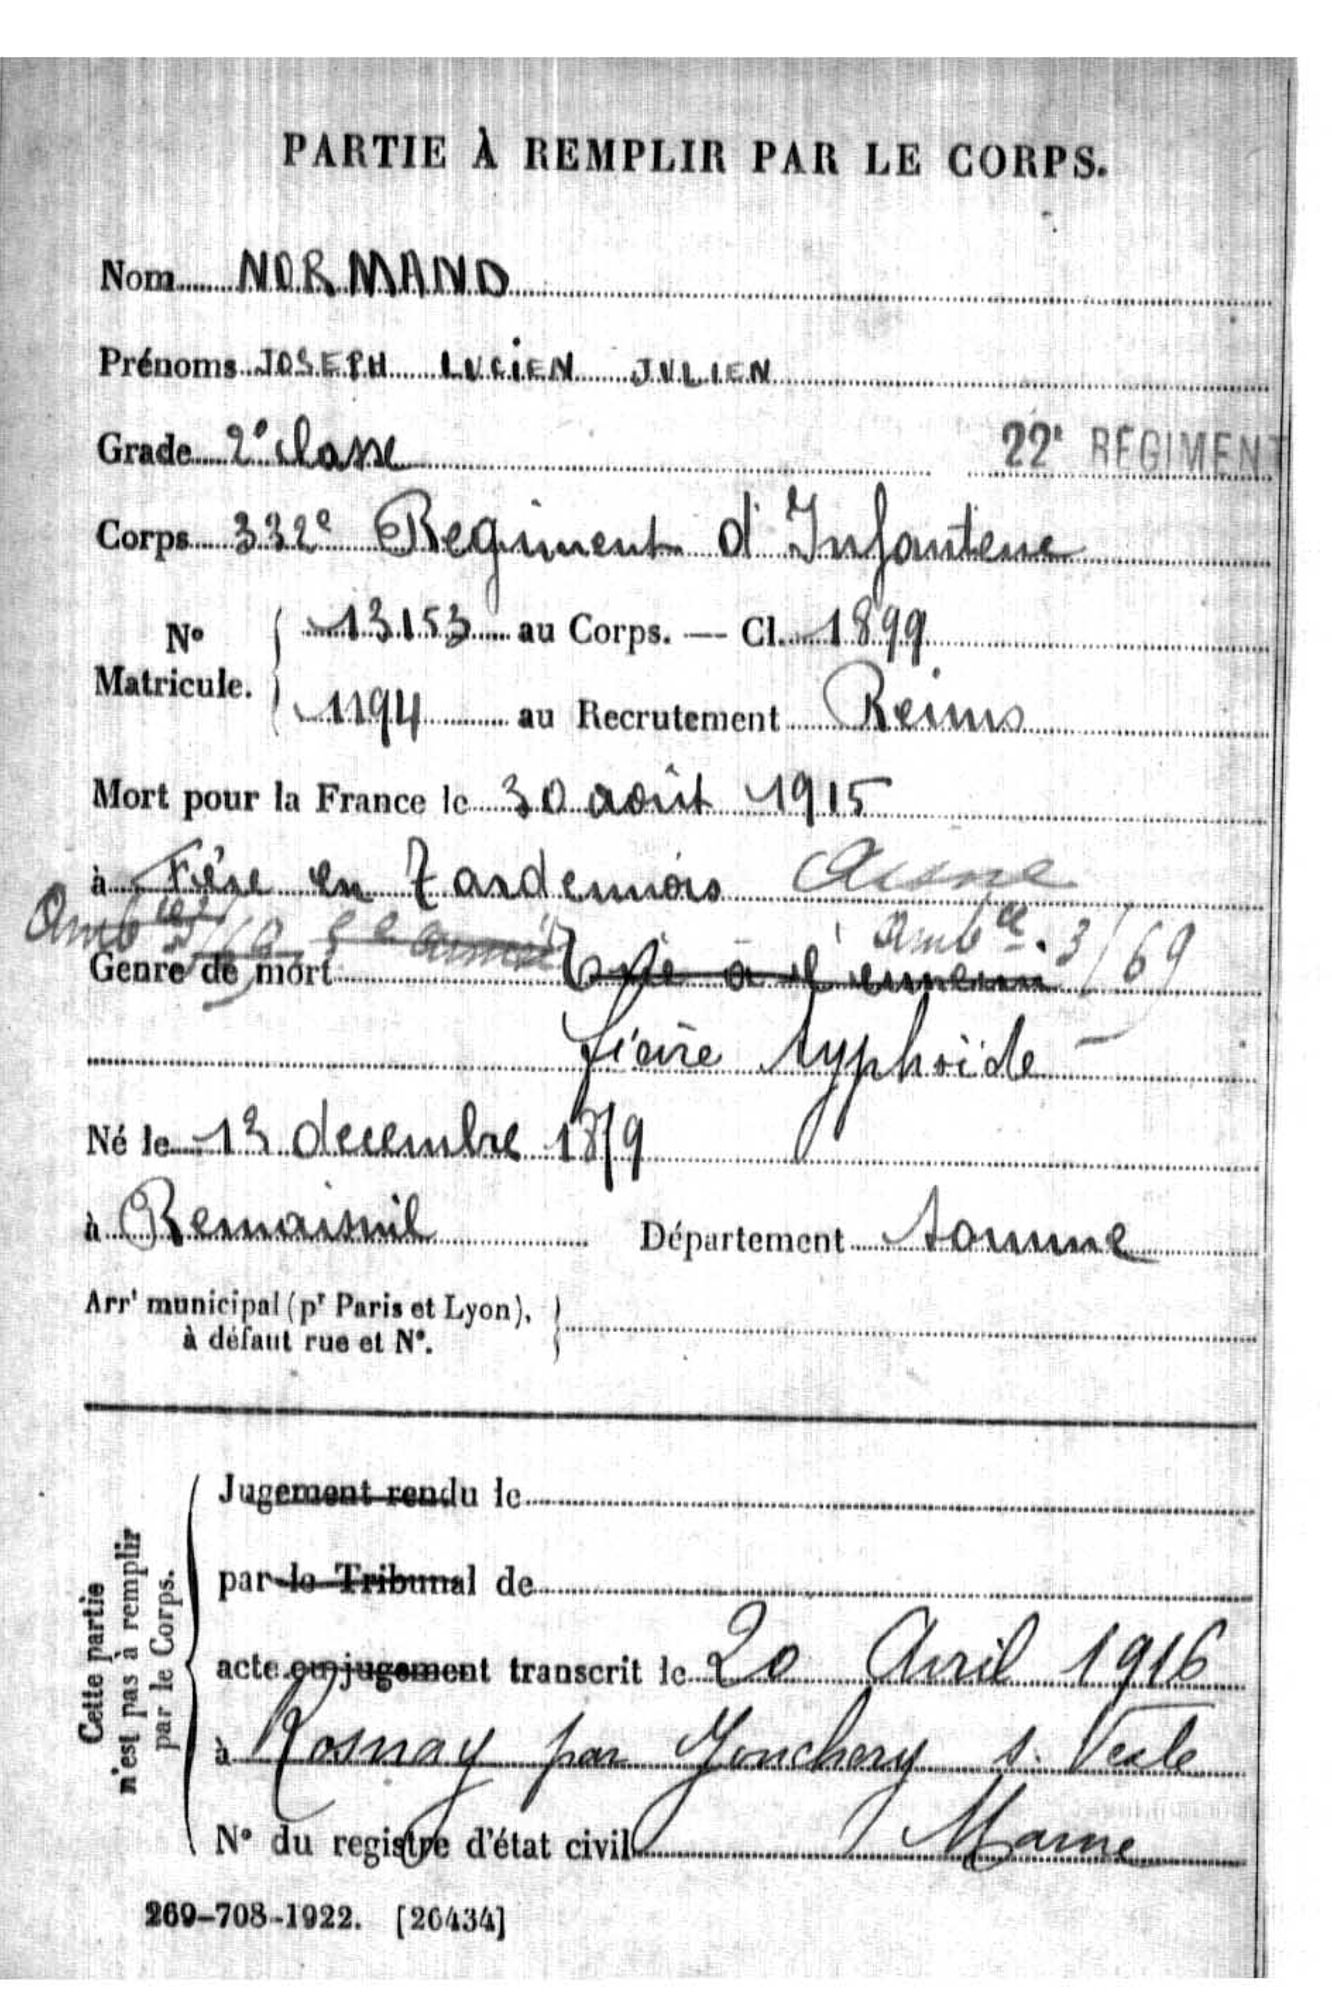 PARTIE À REMPLIR PAR LE CORPS.
Nom NORMAND
Prénoms JOSEPH LUCIEN JULIEN
Grade 2e classe 22e REGIMENT
Corps 332e Regiment d'Infanterie
No Matricule. 13153 au Corps. — Cl. 1899
1194 au Recrutement Reims
Mort pour la France le 30 août 1915
à Fère en Tardennois Aisne
Ambce 3/69 5e armée Ambce. 3/69
Genre de mort Tué à l'ennemi
fièvre typhoïde
Né le 13 decembre 1879
à Remaisnil Département Somme
Arrt municipal (pr Paris et Lyon),
à défaut rue et No.
Cette partie
n'est pas à remplir
par le Corps.
Jugement rendu le
par le Tribunal de
acte ou jugement transcrit le 20 Avril 1916
à Rosnay par Jonchery s. Vesle
No du registre d'état civil Marne
269-708-1922. [26434]